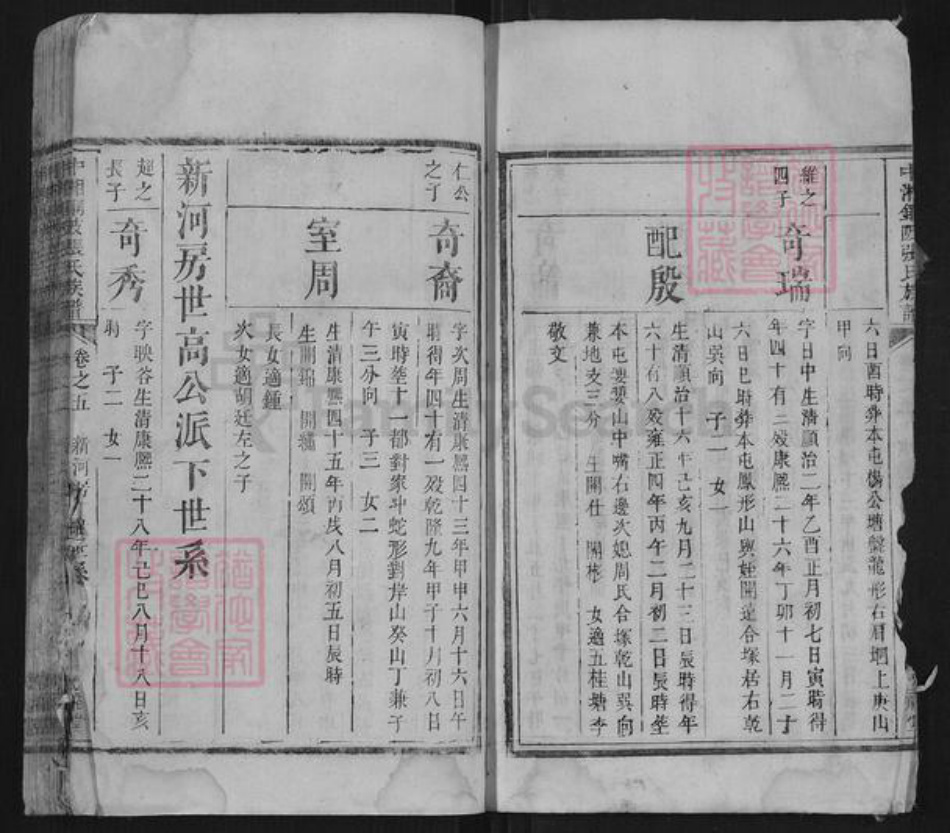 六日酉時葬本屯楊公塘盤龍形右眉堋上庚山
甲向
維之
四子
奇瑞
字日中生清順治二年乙酉正月初七日寅時得
年四十有三歿康熈二十六年丁卯十一月二十
六日巳時葬本屯鳳形山與姪開遠合塚居右乾
山吳向　子一　女一
配殷
生清順治十六年己亥九月二十三日辰時得年
六十有八歿雍正四年丙午二月初二日辰時塟
本屯婁婆山中嘴右邊次媳周氏合塚乾山吳向
兼地支三分　生開仕　開彬　女適五桂塘李
敬文
仁公
之子
奇裔
字次周生清康熈四十三年甲申六月十六日午
時得年四十有一歿乾隆九年甲子十月初八日
寅時塟十一都對家冲蛇形對岸山癸山丁兼子
午三分向　子三　女二
室周
生清康熈四十五年丙戌八月初五日辰時
生開錦　開繡　開頌
長女適鍾
次女適胡廷左之子
新河房世高公派下世系
廷之
長子
奇秀
字映谷生清康熈二十八年己巳八月十八日亥
時　子二　女一
張氏族譜
卷之五
新河房